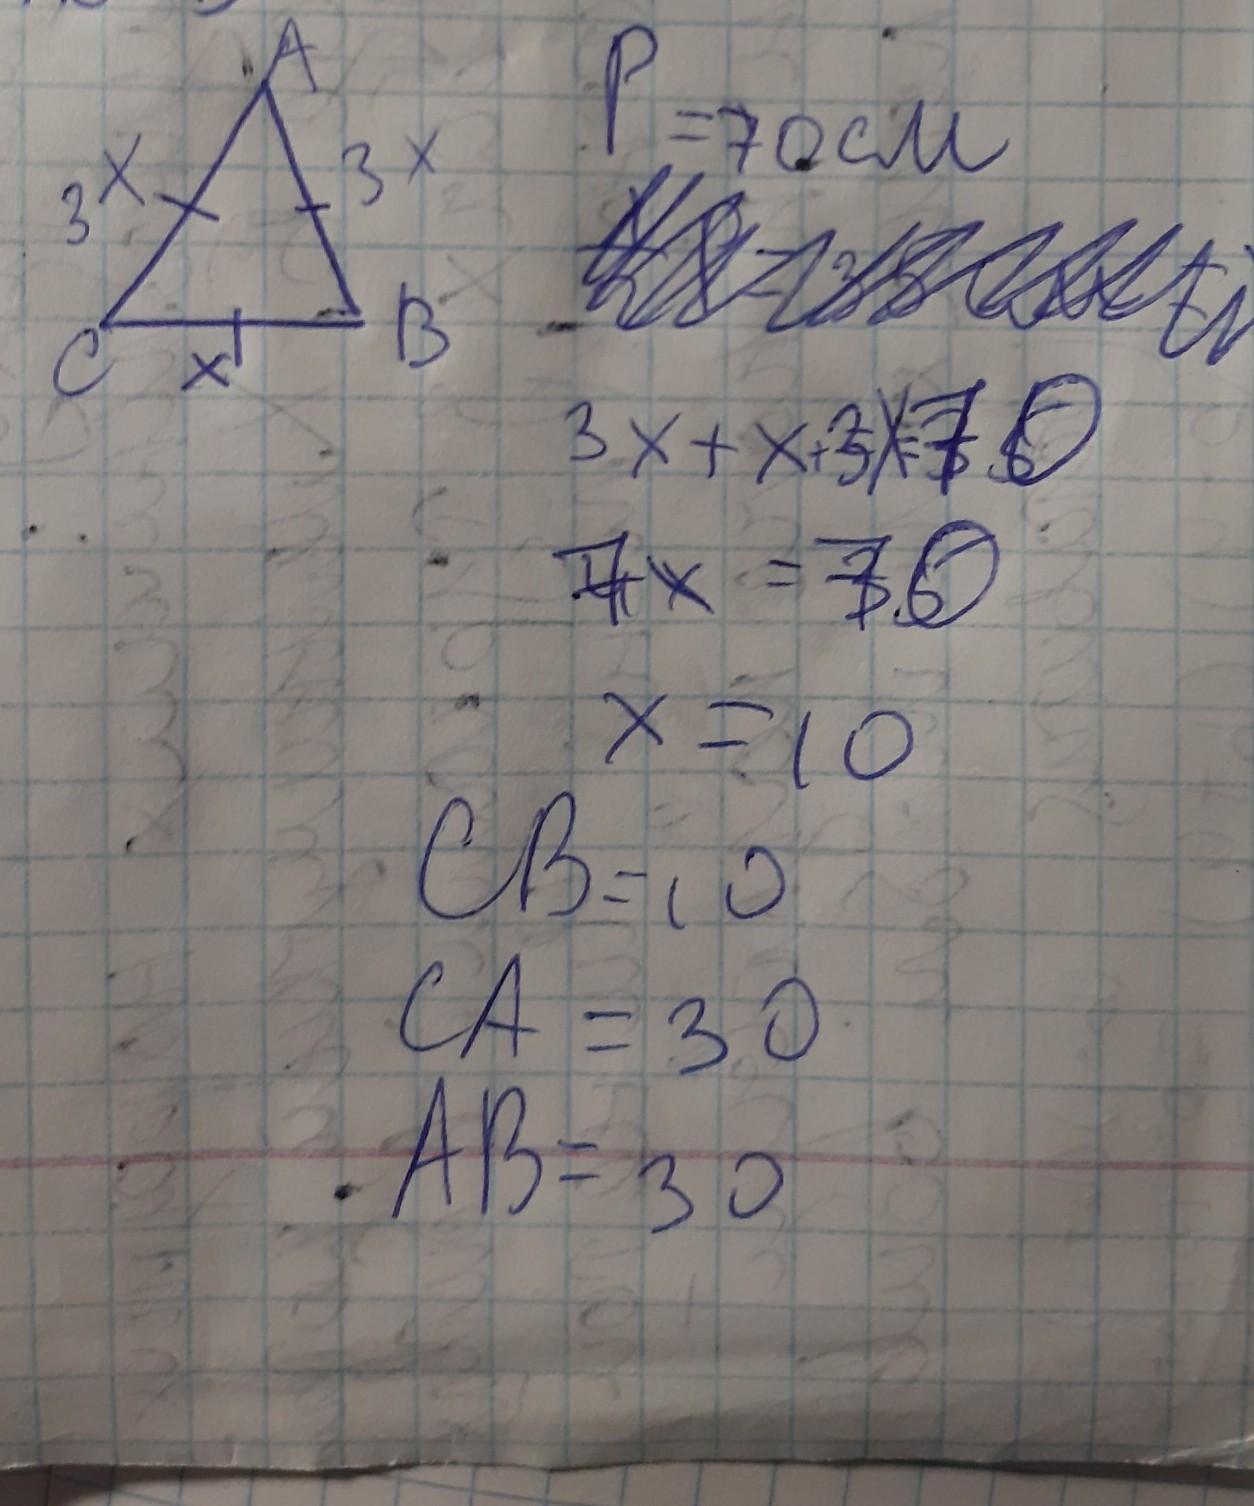 A
3x
3x
C
x
B
P=70см
3x+x+3x=70
7x=70
x=10
CB=10
CA=30
AB=30